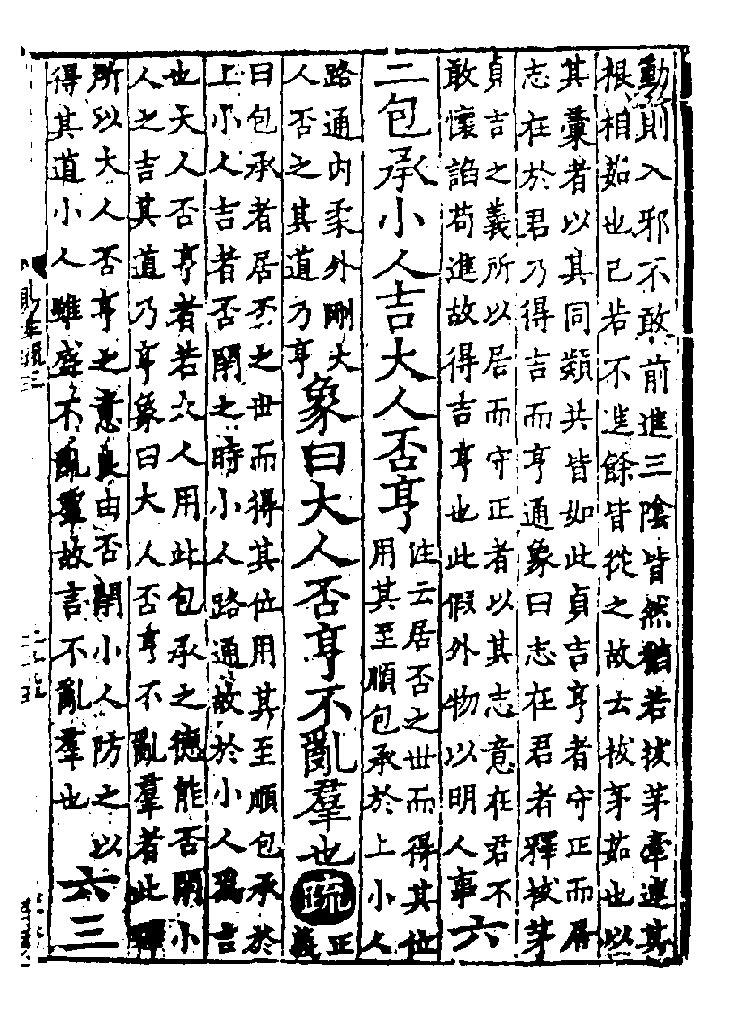 動則入邪不敢前進三陰皆然猶若拔茅牽連其
根相茹也己若不進餘皆從之故云拔茅茹也以
其彙者以其同類共皆如此貞吉亨者守正而居
志在於君乃得吉而亨通象曰志在君者釋拔茅
貞吉之義所以居而守正者以其志意在君不
敢懷諂苟進故得吉亨也此假外物以明人事
六
二包承小人吉大人否亨
注云居否之世而得其位
用其至順包承於上小人
路通内柔外剛大
人否之其道乃亨
象曰大人否亨不亂羣也
疏
正
義
曰包承者居否之世而得其位用其至順包承於
上小人吉者否閉之時小人路通故於小人爲吉
也大人否亨者若大人用此包承之德能否閉小
人之吉其道乃亨象曰大人否亨不亂羣者此釋
所以大人否亨之意良由否閉小人防之以
得其道小人雖盛不亂羣故言不亂羣也
六三